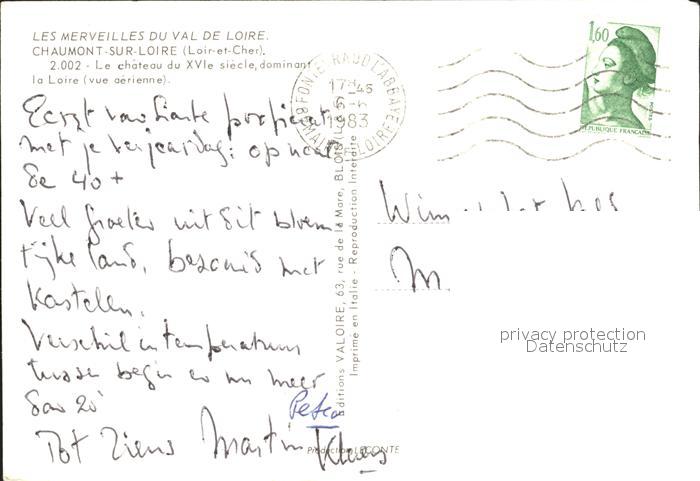 LES MERVEILLES DU VAL DE LOIRE.
CHAUMONT-SUR-LOIRE (Loir-et-Cher).
2.002 - Le château du XVIe siècle, dominant
la Loire (vue aérienne).
Eerst van harte proficiat
met je verjaardag: op naar
de 40+
Veel groeten uit dit bloem
rijke land, bezaaid met
Kastelen.
Verschil in temperatuur
tussen begin en nu meer
dan 20°
Tot Ziens Martin
Peter
Klaas
Production LECONTE
Editions VALOIRE, 63, rue de la Mare, BLOIS
Imprimé en Italie - Reproduction Interdite
FONTEVRAUD L'ABBAYE
17 45
6
1983
MAINE LOIRE
1,60
POSTES
REPUBLIQUE FRANCAISE
Wim
M
privacy protection
Datenschutz